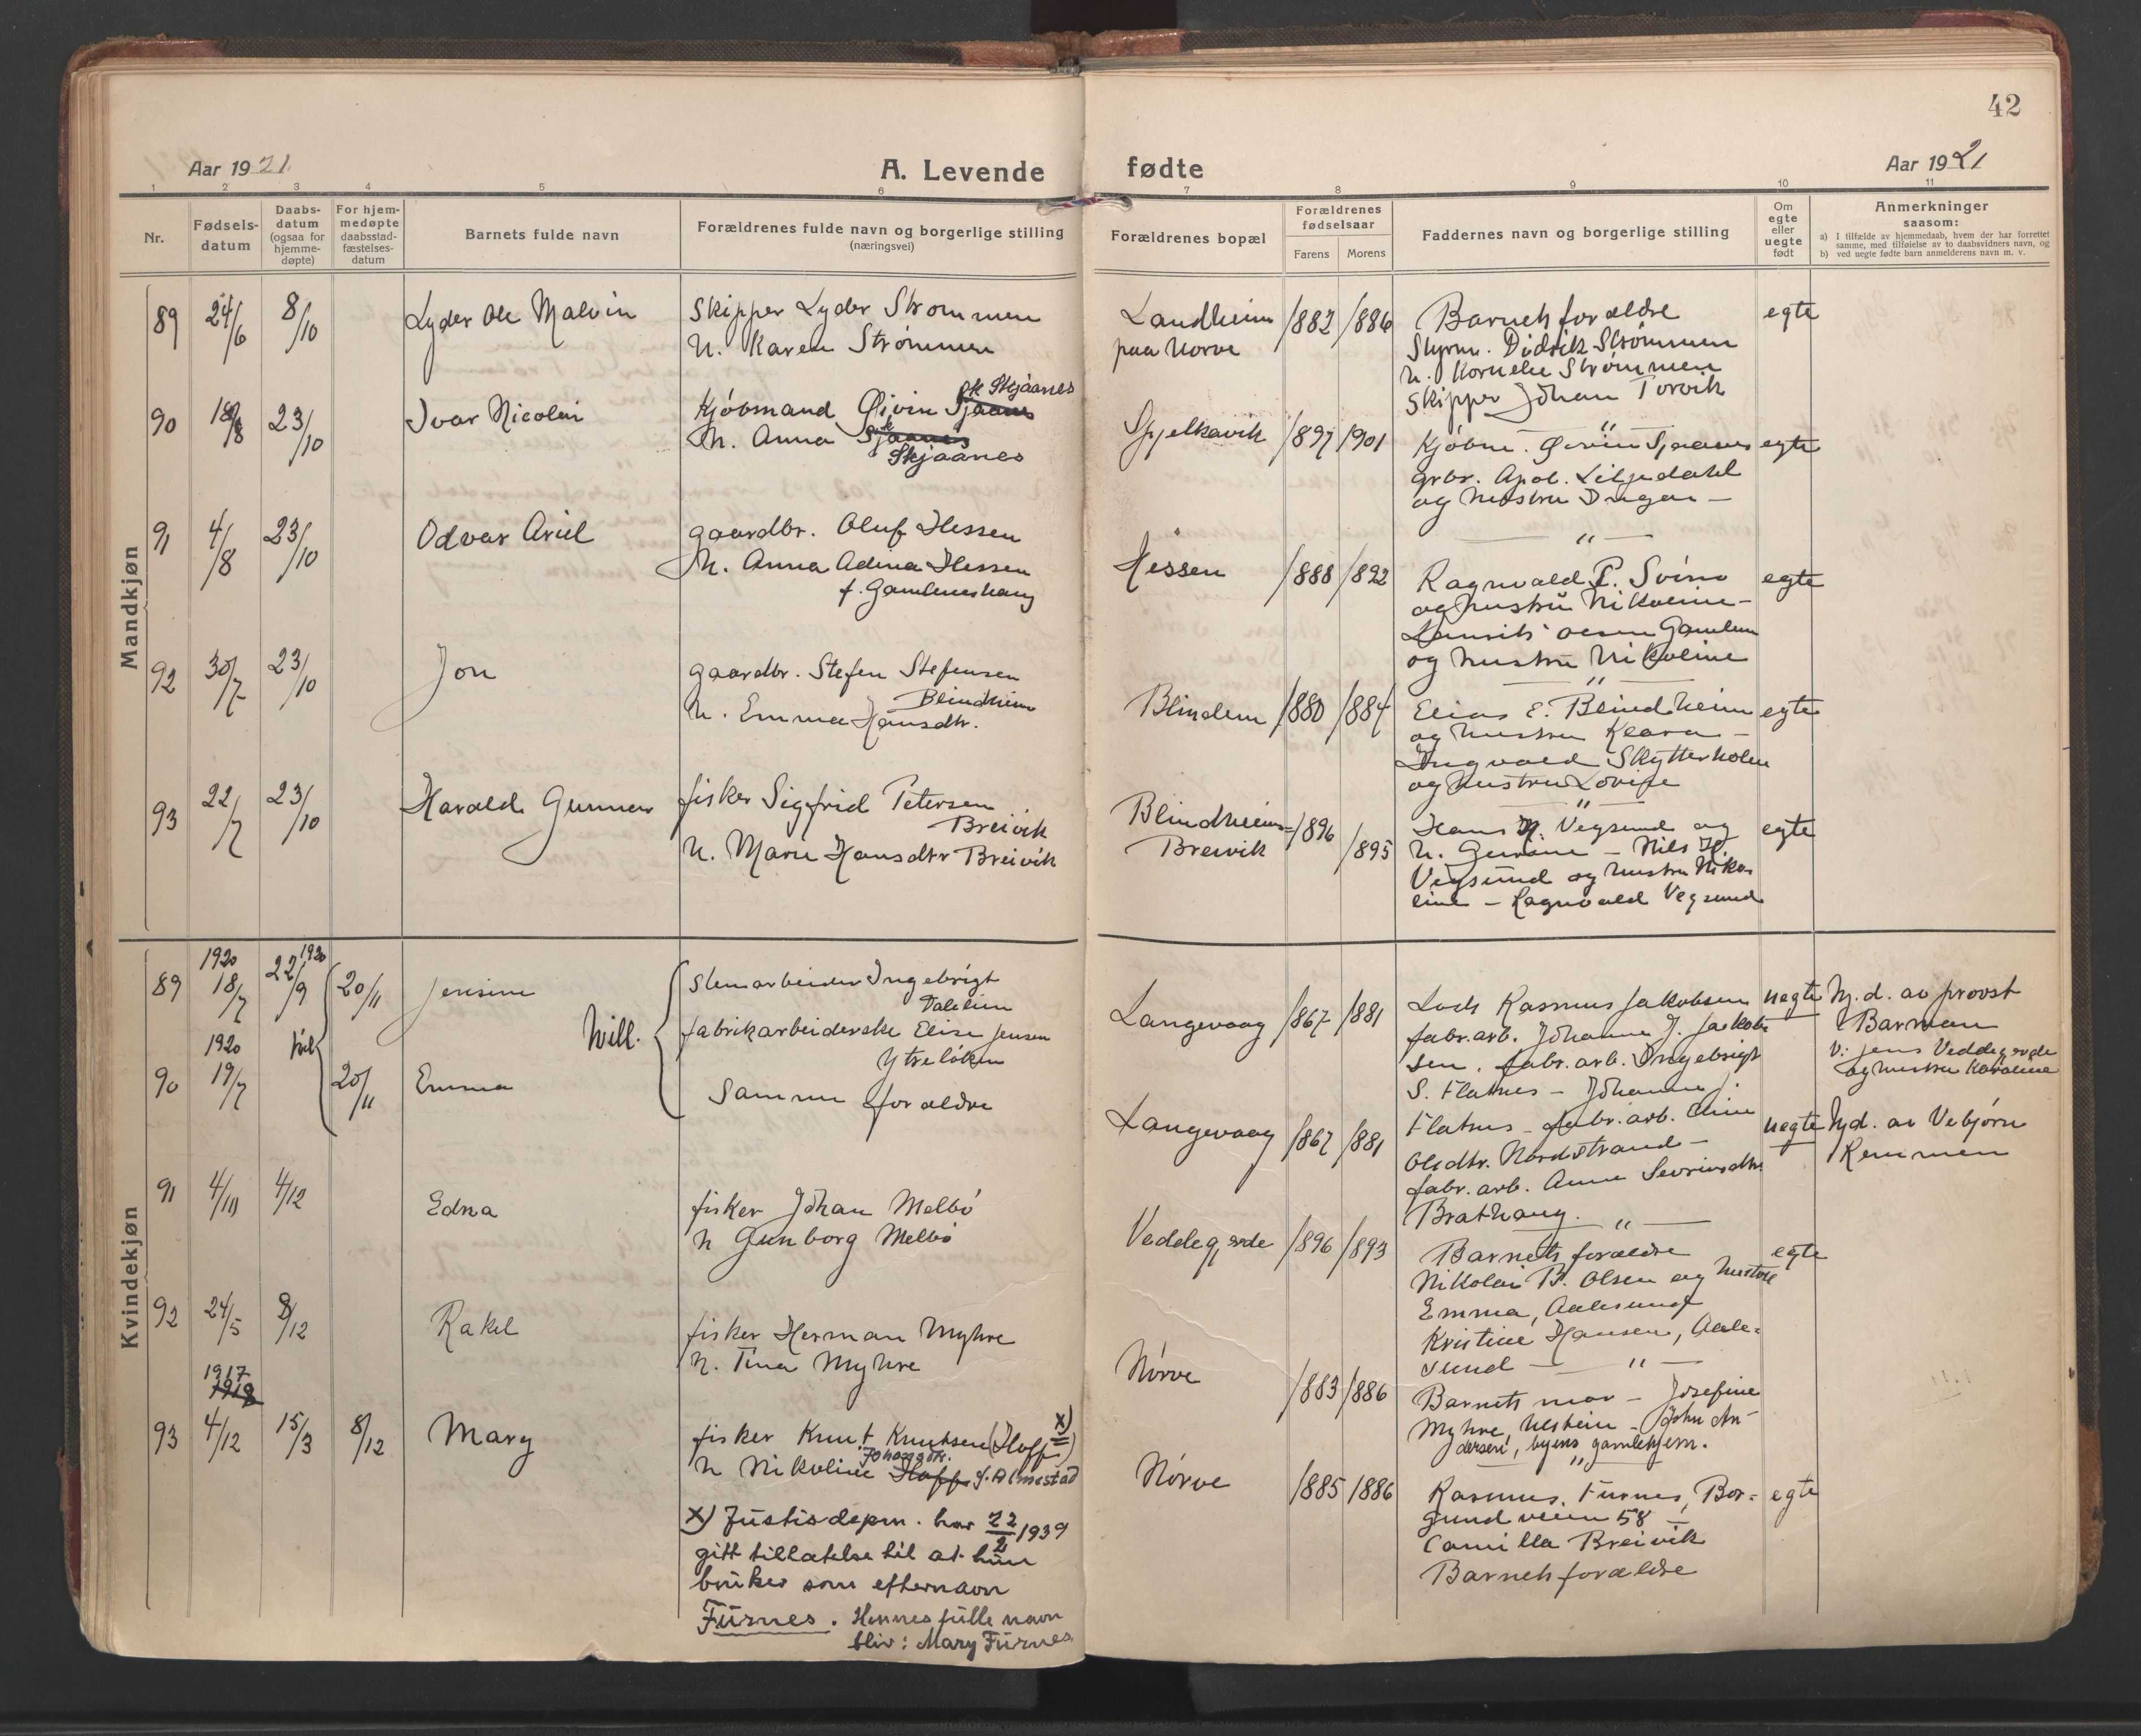 42
Aar 1921.
A. Levende fødte
Aar 1921
1 2 3 4 5 6 7 8 9 10 11
Nr.
Fødsels-
datum
Daabs-
datum
(ogsaa for
hjemme-
døpte)
For hjem-
medøpte
daabsstad-
fæstelses-
datum
Barnets fulde navn
Forældrenes fulde navn og borgerlige stilling
(næringsvei)
Forældrenes bopæl
Forældrenes
fødselsaar
Farens Morens
Faddernes navn og borgerlige stilling
Om
egte
eller
uegte
født
Anmerkninger
saasom:
a) I tilfælde av hjemmedaab, hvem der har forrettet
samme, med tilføielse av to daabsvidners navn, og
b) ved uegte fødte barn anmelderens navn m. v.
Mandkjøn
89 24/6 8/10 Lyder Ole Malvin
Skipper Lyder Strømmen
h. Karen Strømmen
Landheim
paa Nørve
1882 1886
Barnets forældre
Styrm. Didrik Strømmen
h. Kornelie Strømmen
Skipper Johan Torvik
egte
90 18/8 23/10 Ivar Nicolai
Kjøbmand Øivin Sjaanes
sk Skjaanes
h. Anna Sjaanes
Skjaanes
Spjelkavik
1897 1901
Kjøbm. Øivin Sjaanes
grbr. Apol. Liljedahl
og hustru Dagny —
— " —
egte
91 4/8 23/10 Odvar Ariel
gaardbr. Oluf Hessen
h. Anna Adina Hessen
f. Gamlemshaug
Hessen
1888 1892
Ragnvald P. Svino
og hustru Nikoline —
Laurits Olsen Gamlem
og hustru Nikoline
— " —
egte
92 30/7 23/10 Jon
gaardbr. Stefen Stefensen
Blindheim
h. Emma Hansdtr.
Blindem
1880 1884
Elias E. Blindheim
og hustru Klara —
Ingvald Skytterholm
og hustru Lovise
— " —
egte
93 22/7 23/10 Harald Gunnar
fisker Sigfrid Petersen
Breivik
h. Marie Hansdtr Breivik
Blindheims=
Breivik
1896 1895
Hans H. Vegsund og
h. Guruine — Nils H.
Vegsund og hustru Niko-
line — Ragnvald Vegsund
egte
Kvindekjøn
89 1920 18/7 1920 22/9 20/11 Jensine
tvil.
Stenarbeider Ingebrigt
Dalelien
fabrikarbeiderske Elise Jensen
Ytreløken
Langevaag
1867 1881
Lods Rasmus Jakobsen
fabr.arb. Johanne J. Jakob-
sen. fabr.arb. Ingebrigt
S. Flatnes — Johanne J.
uegte
Hj.d. av provst
Barman
V: Jens Veddegjerde
og hustru Karoline
90 1920 19/7 20/11 Emma
Samme forældre
Langevaag
1867 1881
Flatnes — fabr.arb. Oline
Olsdtr. Nordstrand —
fabr. arb. Anne Sevrinsdtr.
Brathaug.
— " —
uegte
Hjd. av Vebjørn
Remmen
91 4/10 4/12 Edna
fisker Johan Melbø
h Gunborg Melbø
Veddegjerde
1896 1893
Barnets forældre
Nikolai B. Olsen og hustru
Emma, Aalesund
Kristine Hansen, Aale-
sund — " —
egte
92 24/5 8/12 Rakel
fisker Herman Myhre
h. Tina Myhre
Nørve
1883 1886
Barnets mor — Josefine
Myhre, Ulstein — John An-
dersen, byens gamlehjem.
— " —
93 1917 1918 4/12 15/3 8/12 Mary
fisker Knut Knutsen (Hoff) x)
Johansdtr.
h Nikoline Hoff f. Almestad
Nørve
1885 1886
Rasmus Furnes, Bor-
gundveien 58 —
Camilla Breivik
Barnets forældre
egte
x) Justisdepm. har 22/2 1939
gitt tillatelse til at hun
bruker som efternavn
Furnes. Hennes fulle navn
bliv: Mary Furnes.